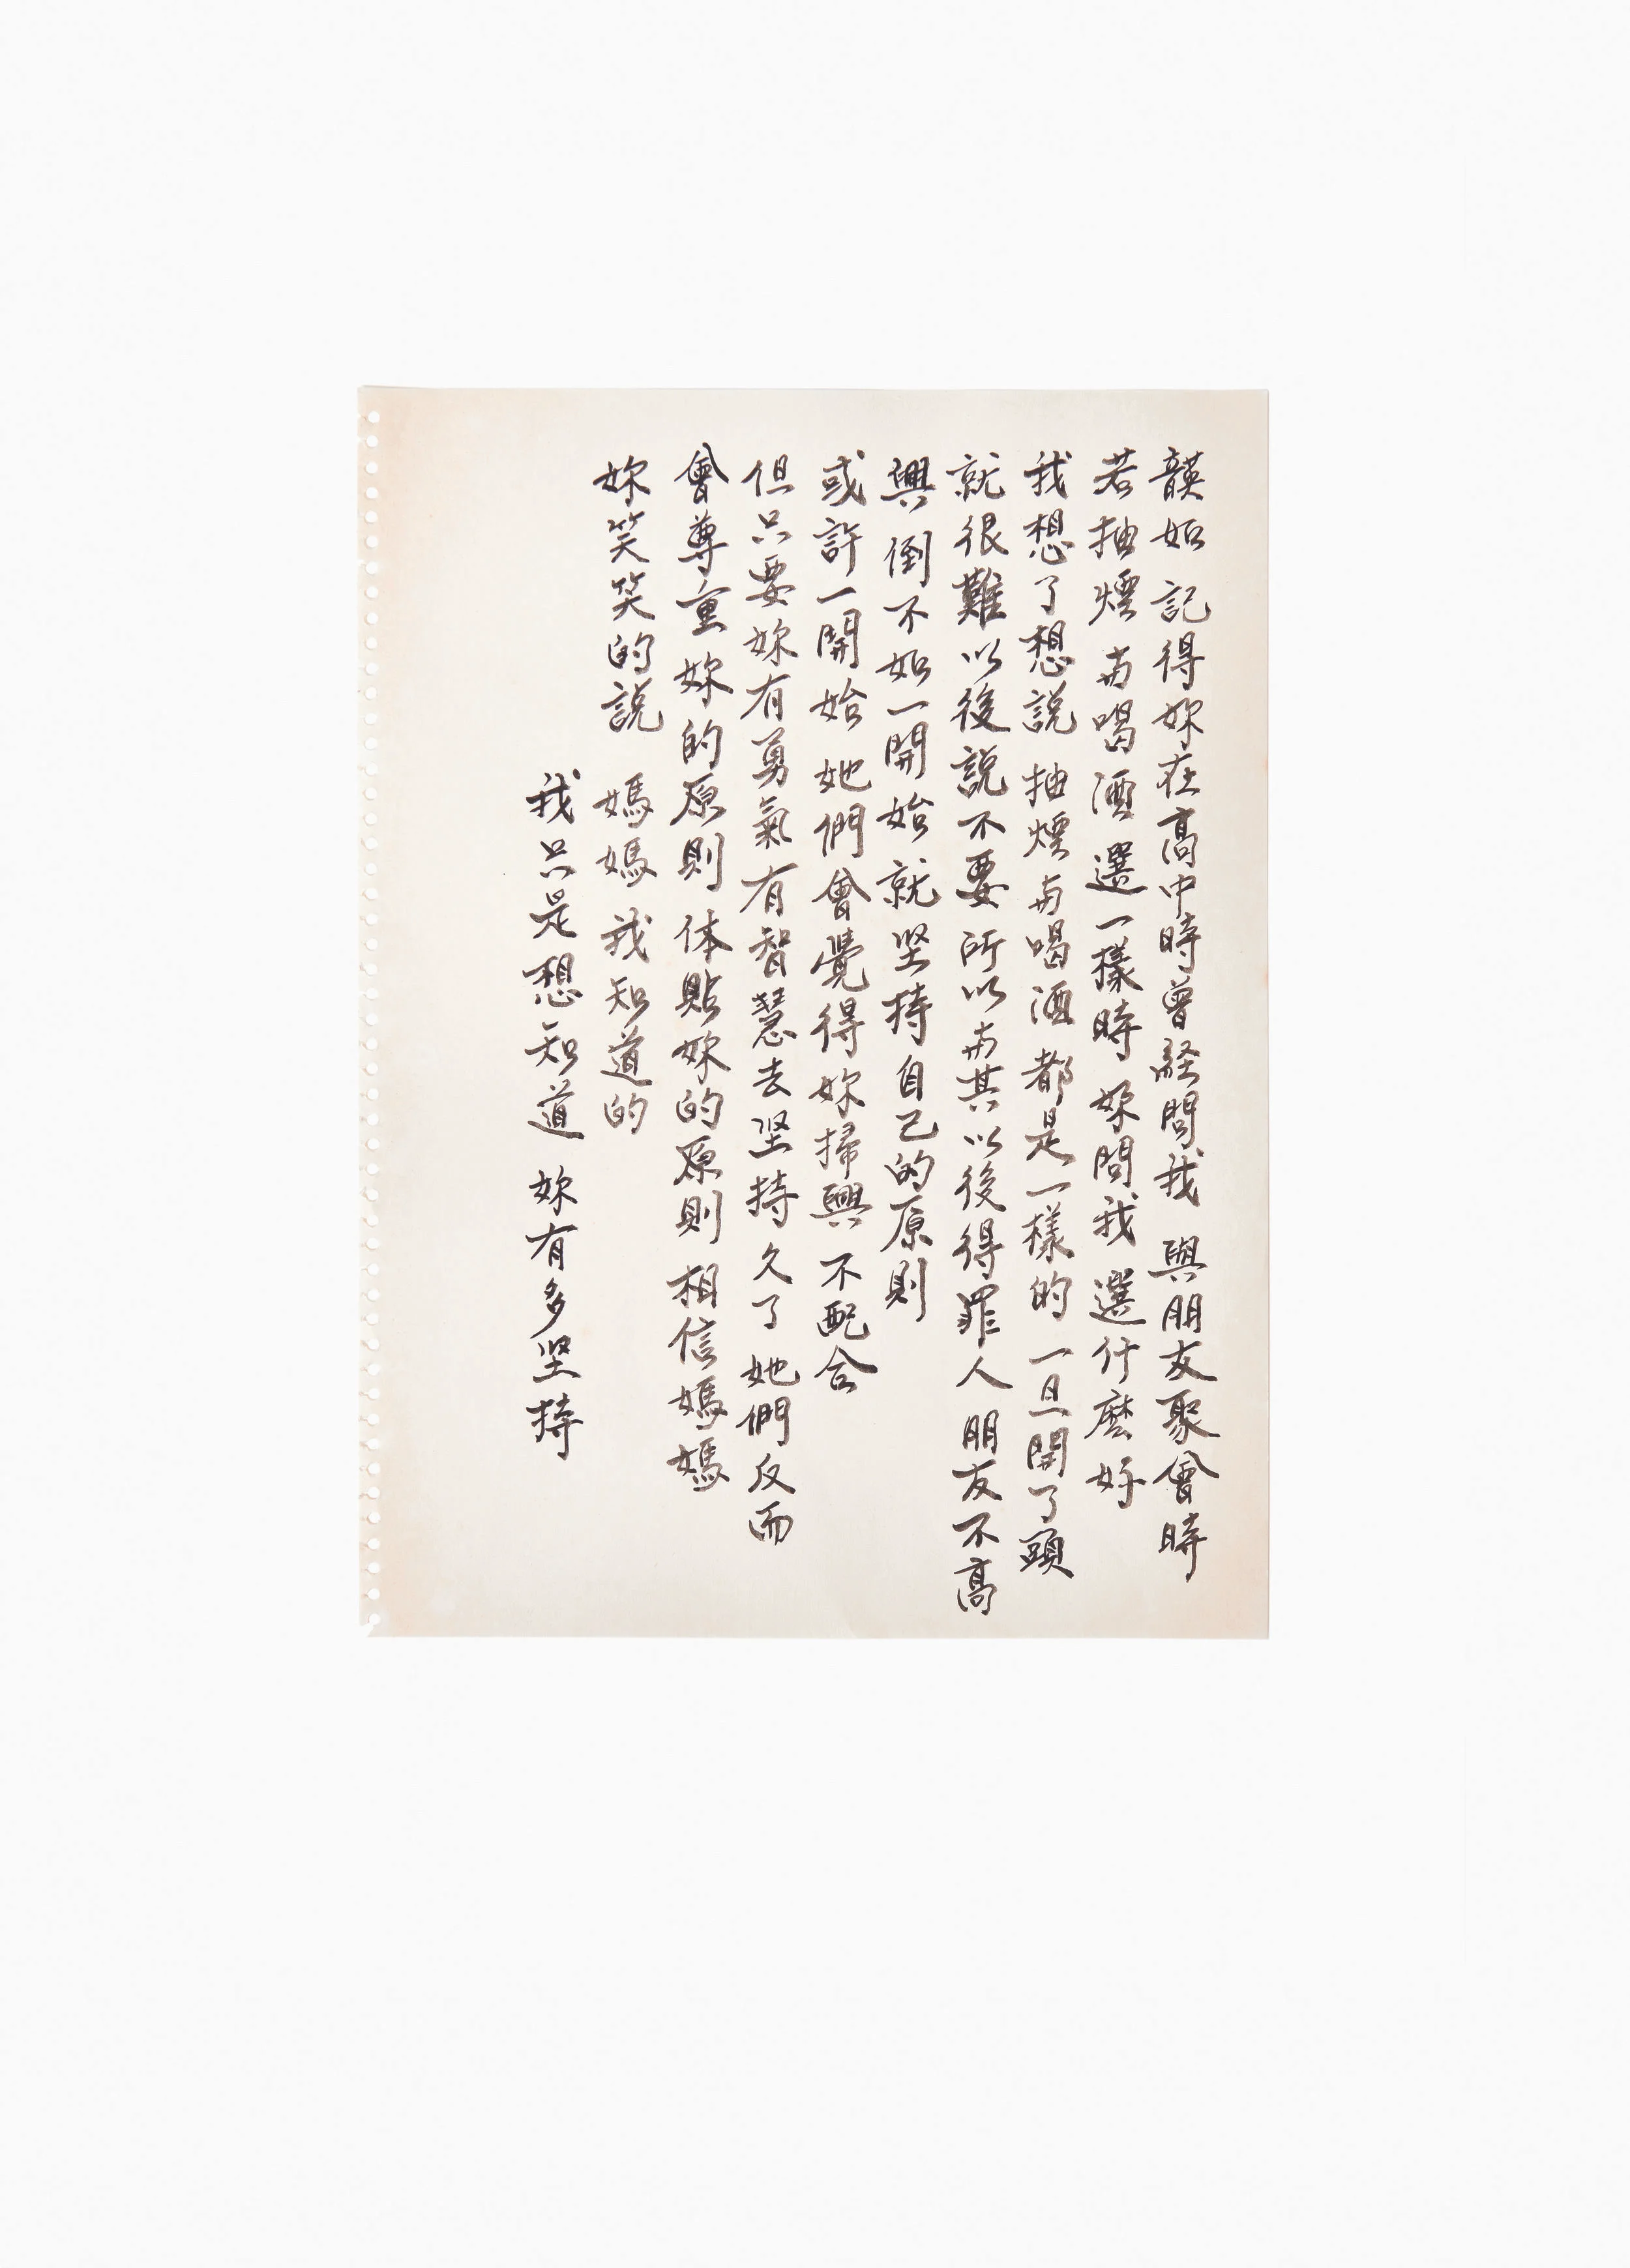 韺如 記得妳在高中時曾経問我 與朋友聚會時
若抽煙与喝酒 選一樣時 妳問我 選什麼好
我想了想說 抽煙与喝酒 都是一樣的 一旦開了頭
就很難以後說不要 所以与其以後得罪人 朋友不高
興 倒不如一開始就坚持自己的原則
或許一開始 她們會覺得妳掃興 不配合
但只要妳有勇氣有智慧去坚持 久了 她們反而
會尊重妳的原則 体貼妳的原則 相信媽媽
妳笑笑的說 媽媽 我知道的
我只是想知道 妳有多坚持